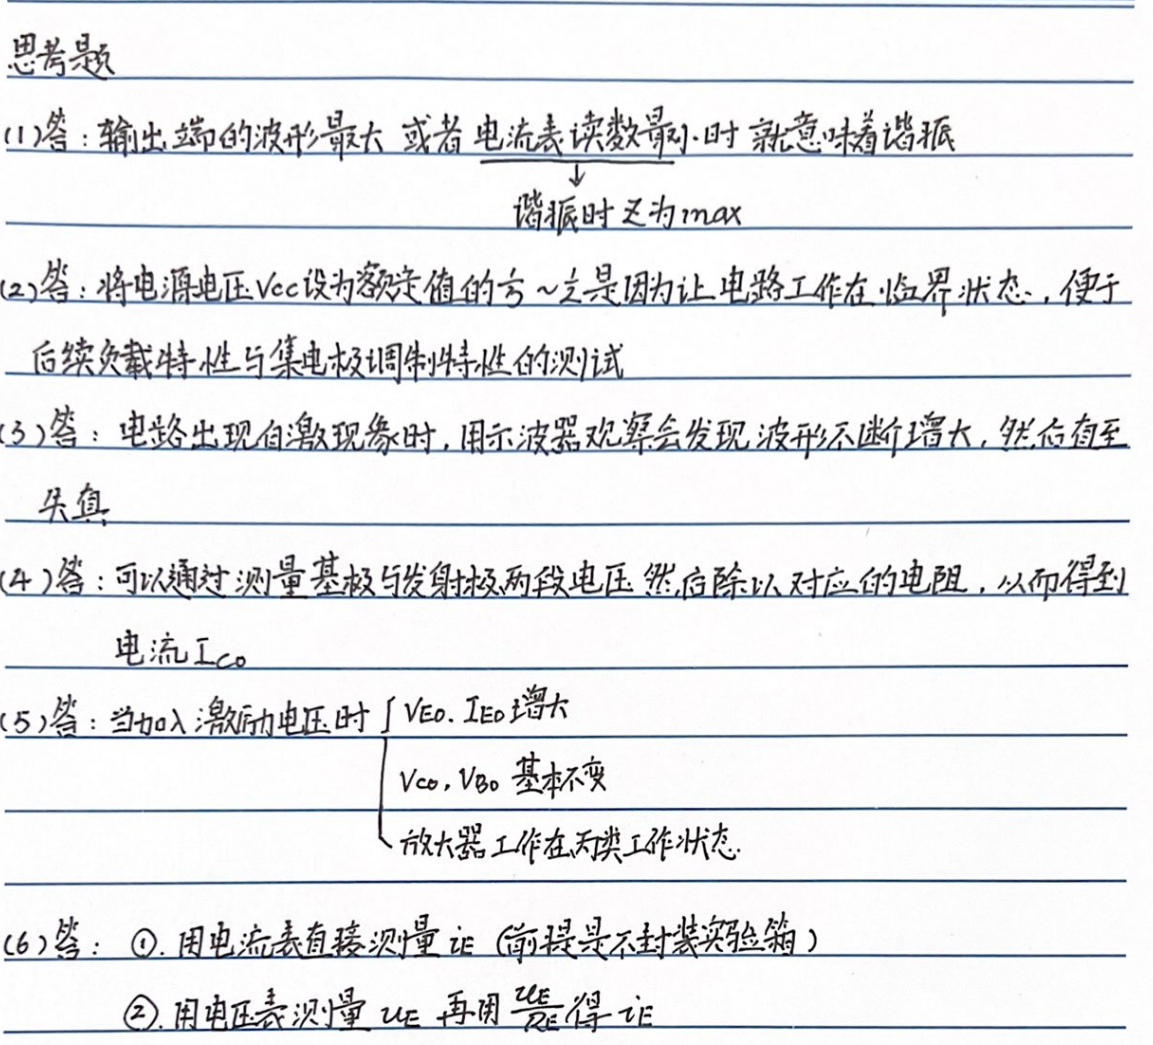 思考题
(1)答：输出端的波形最大 或者电流表读数最小时 就意味着谐振
↓
谐振时 Z为max
(2)答：将电源电压Vcc设为额定值的 ~ 是因为让电路工作在临界状态，便于
后续负载特性与集电极调制特性的测试
(3)答：电路出现自激现象时，用示波器观察会发现波形不断增大，然后直至
失真
(4)答：可以通过测量基极与发射极两段电压 然后除以对应的电阻，从而得到
电流Ico
(5)答：当加入激励电压时 VEO．IEO增大
Vco，VBo 基本不变
放大器工作在丙类工作状态．
(6)答：①．用电流表直接测量 iE (前提是不封装实验箱)
②．用电压表测量 uE 再用 uE/RE 得 iE